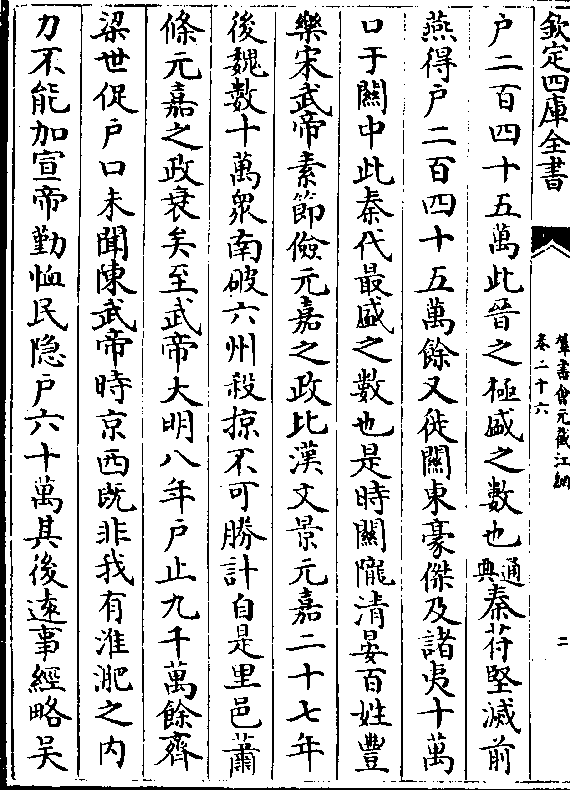 欽定四庫全書
羣書會元截江網
卷二十六
二
户二百四十五萬此晉之極盛之數也通典秦苻堅滅前
燕得户二百四十五萬餘又徙關東豪傑及諸夷十萬
口于關中此秦代最盛之數也是時關隴清晏百姓豐
樂宋武帝素節儉元嘉之政比漢文景元嘉二十七年
後魏數十萬衆南破六州殺掠不可勝計自是里邑蕭
條元嘉之政衰矣至武帝大明八年户止九千萬餘齊
梁世促户口未聞陳武帝時京西既非我有淮淝之内
力不能加宣帝勤恤民隐户六十萬其後遠事經略吴